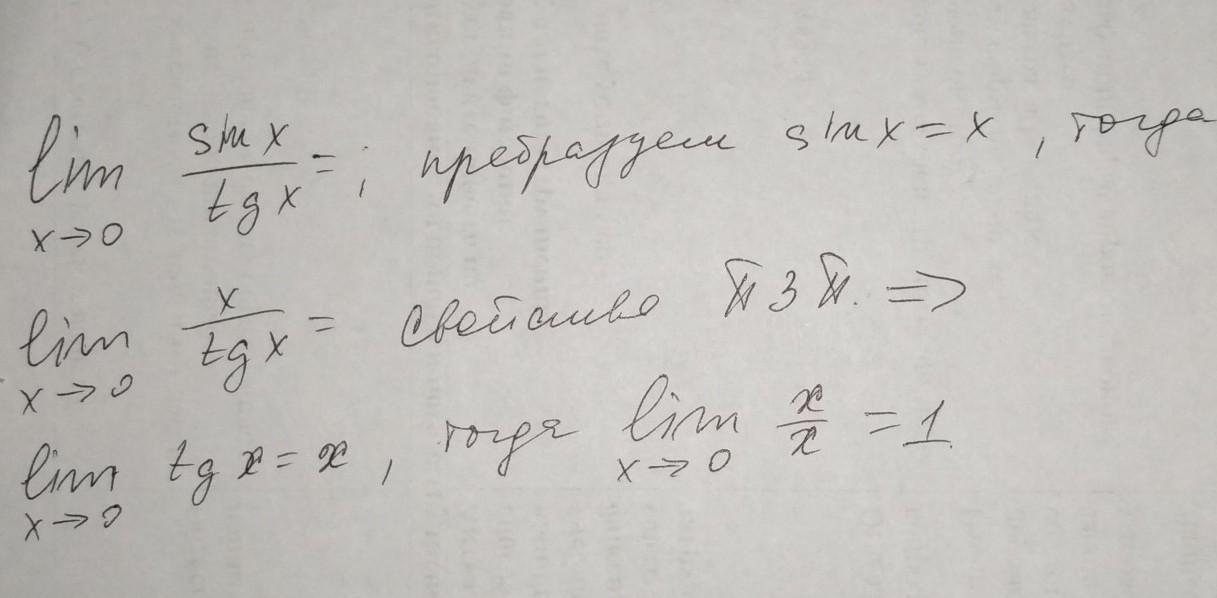 lim x→0 sin x / tg x = ; пребразуем sin x = x , тогда
lim x→0 x / tg x = свойство П З П. =>
lim x→0 tg x = x , тогда lim x→0 x / x = 1.